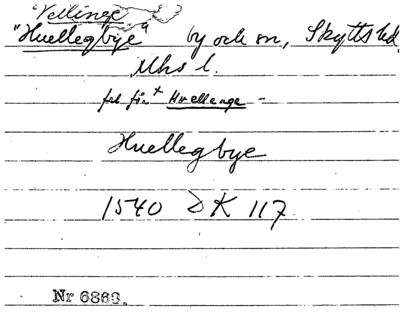 "Vellinge
"Huellegbye" by och sn, Skytts hd.
Mhs l.
fel för + Huellenge -
Huellegbye
1540 DK 117
Nr 6866.